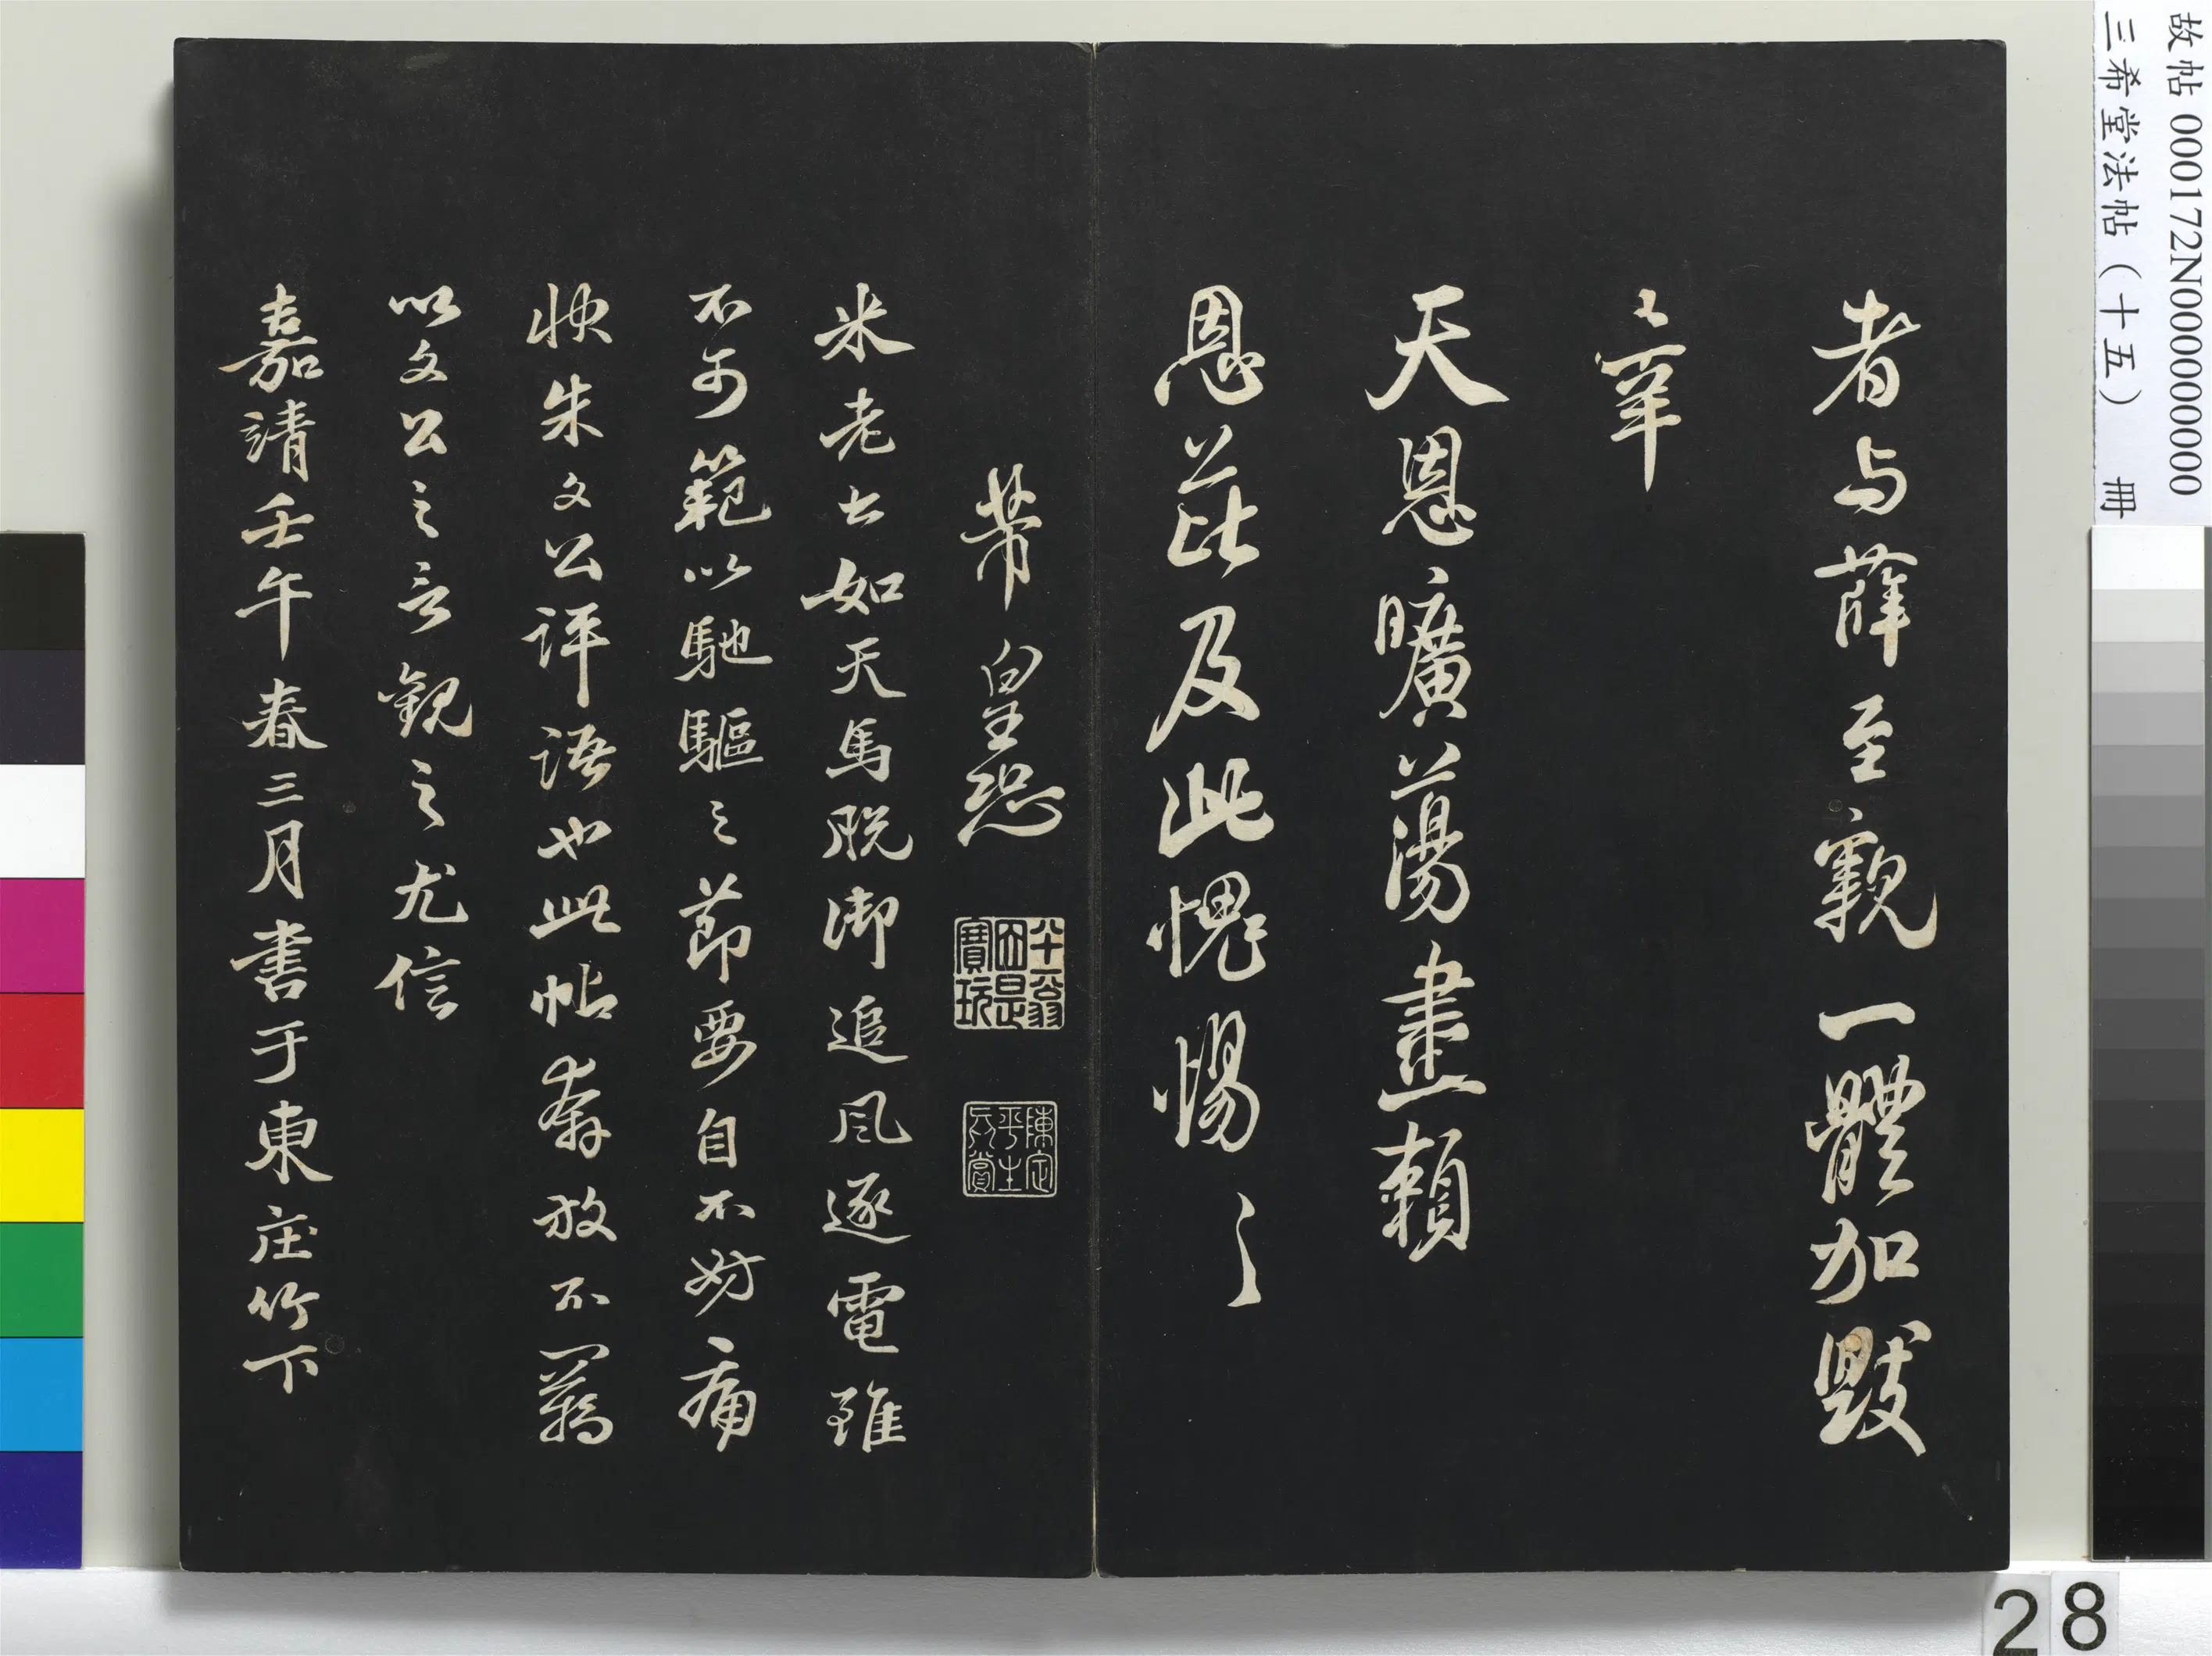 故帖 000172N000000000
三希堂法帖（十五） 冊
者与薛至親一體加毀
之辜
天恩曠蕩盡賴
恩芘及此愧惕之
芾皇恐
米老書如天馬脱御追風逐電雖
不可範以馳驅之節要自不妨痛
快朱文公評語也此帖奔放不羈
以文公之言觀之尤信
嘉靖壬午春三月書于東庄竹下
28